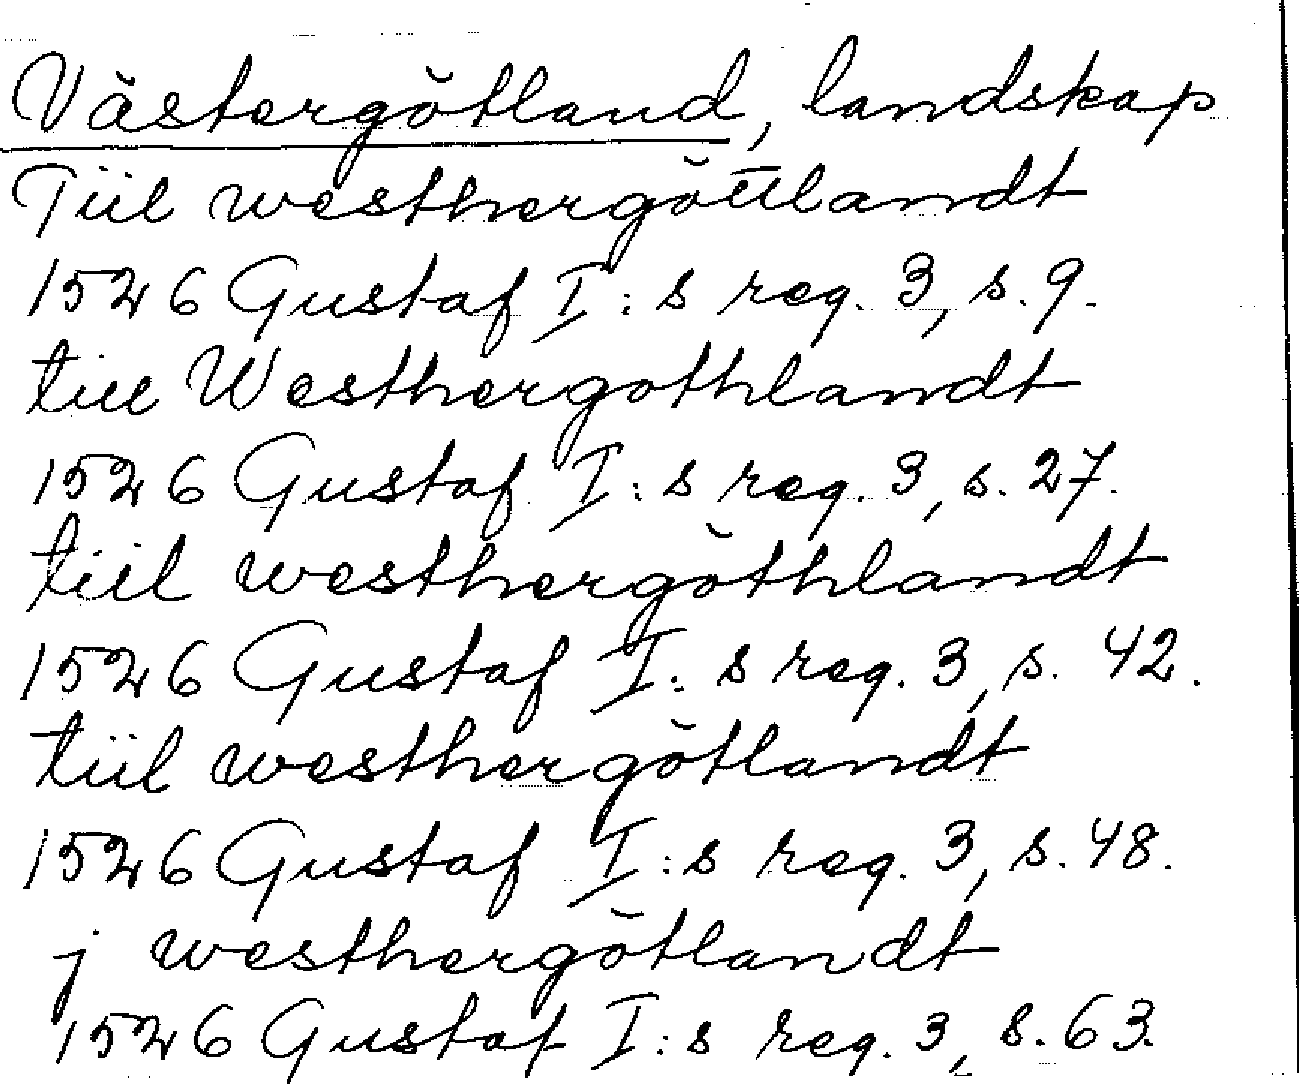 Västergötland, landskap
Tiil westhergöttlandt
1526 Gustaf I:s reg. 3, s. 9.
till Westhergothlandt
1526 Gustaf I:s reg. 3, s. 27.
tiil westhergöthlandt
1526 Gustaf I:s reg. 3, s. 42.
tiil westhergötlandt
1526 Gustaf I:s reg. 3, s. 48.
j westhergötlandt
1526 Gustaf I:s reg. 3, s. 63.